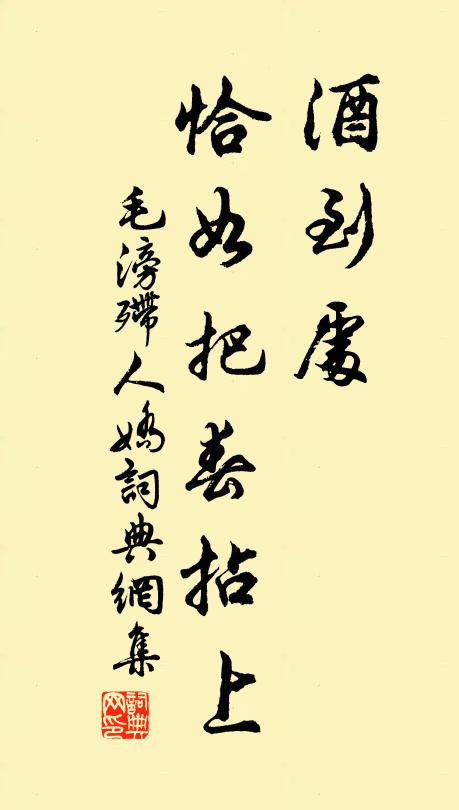 酒到處
恰如把春拈上
毛滂殢人嬌詞典網集
詞典網印